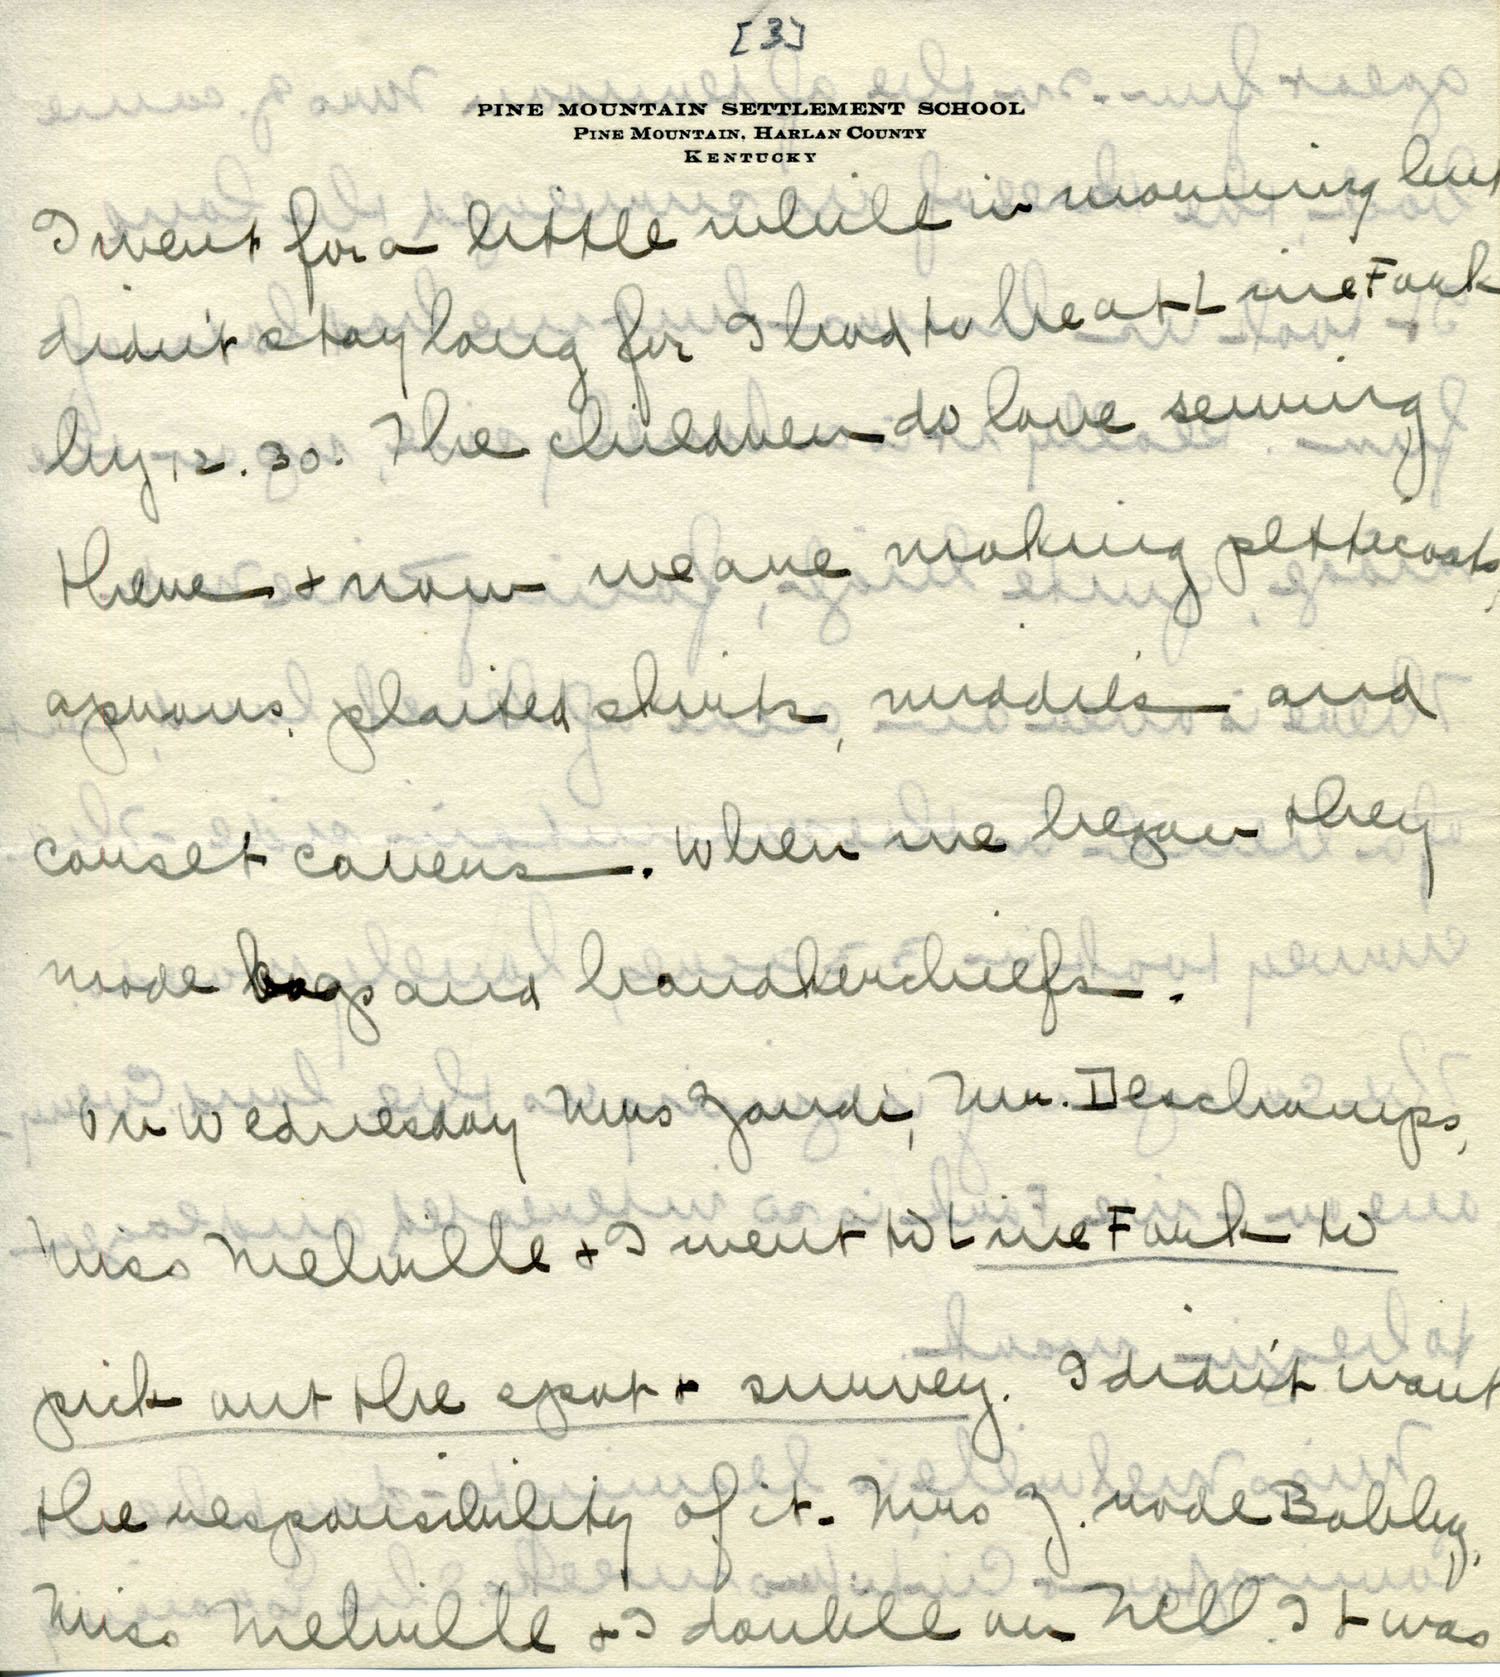 [3]
PINE MOUNTAIN SETTLEMENT SCHOOL
PINE MOUNTAIN, HARLAN COUNTY
KENTUCKY
I went for a little while in morning but
didn't stay long for I had to be at Line Fork
by 12.30. The children do love sewing
there + now we are making petticoats,
aprons, plaited skirts, middies and
corset covers. When we began they
made bags and handkerchiefs.
On Wednesday Mrs Zande, Mr. Deschamps,
Miss Melville + I went to Line Fork to
pick out the spot + survey. I didn't want
the responsibility of it. Mrs Z. rode Bobby,
Miss Melville + I double on Nell. It was